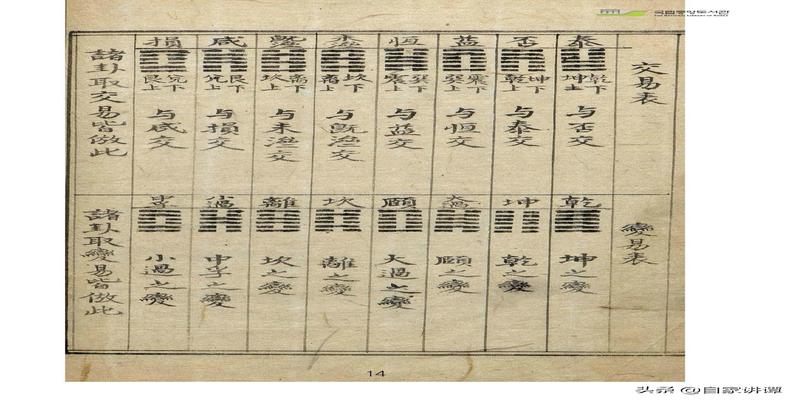 국립중앙도서관
THE NATIONAL LIBRARY OF KOREA
交易表
泰
乾下
坤上
与否交
否
坤下
乾上
与泰交
益
震下
巽上
与恒交
恒
巽下
震上
与益交
坎下
离上
与既济交
离下
坎上
与未济交
咸
艮下
兑上
与損交
損
兑下
艮上
与咸交
諸卦取交易皆倣此
變易表
乾
坤之變
坤
乾之變
頤之變
頤
大過之變
坎
離之變
離
坎之變
小過
中孚之變
小過之變
諸卦取變易皆倣此
14
头条 @自家讲谭